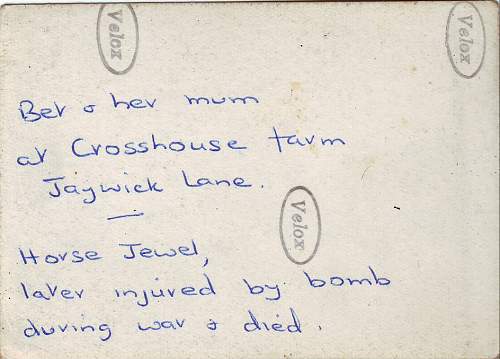 Velox
Velox
Bet & her mum
at Crosshouse farm
Jaywick Lane.
Velox
Horse Jewel,
later injured by bomb
during war & died.